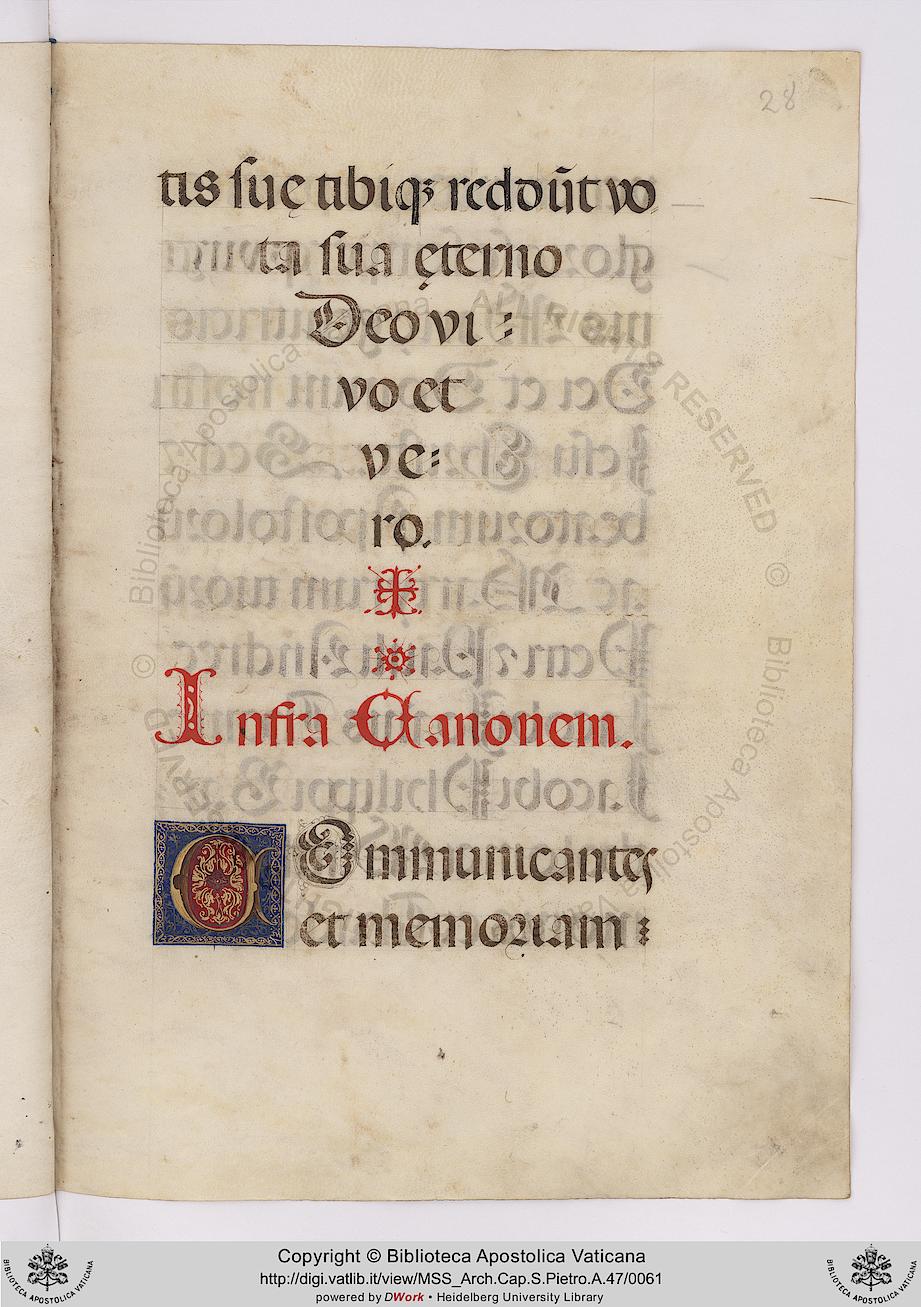 28
tis suę tibiqꝫ reddūt vo
ta sua ęterno
Deo vi⸗
vo et
ve⸗
ro.
Infra Canonem.
COmmunicantes
et memoriam
Copyright © Biblioteca Apostolica Vaticana
http://digi.vatlib.it/view/MSS_Arch.Cap.S.Pietro.A.47/0061
powered by DWork • Heidelberg University Library
BIBLIOTECA APOSTOLICA VATICANA
BIBLIOTECA APOSTOLICA VATICANA